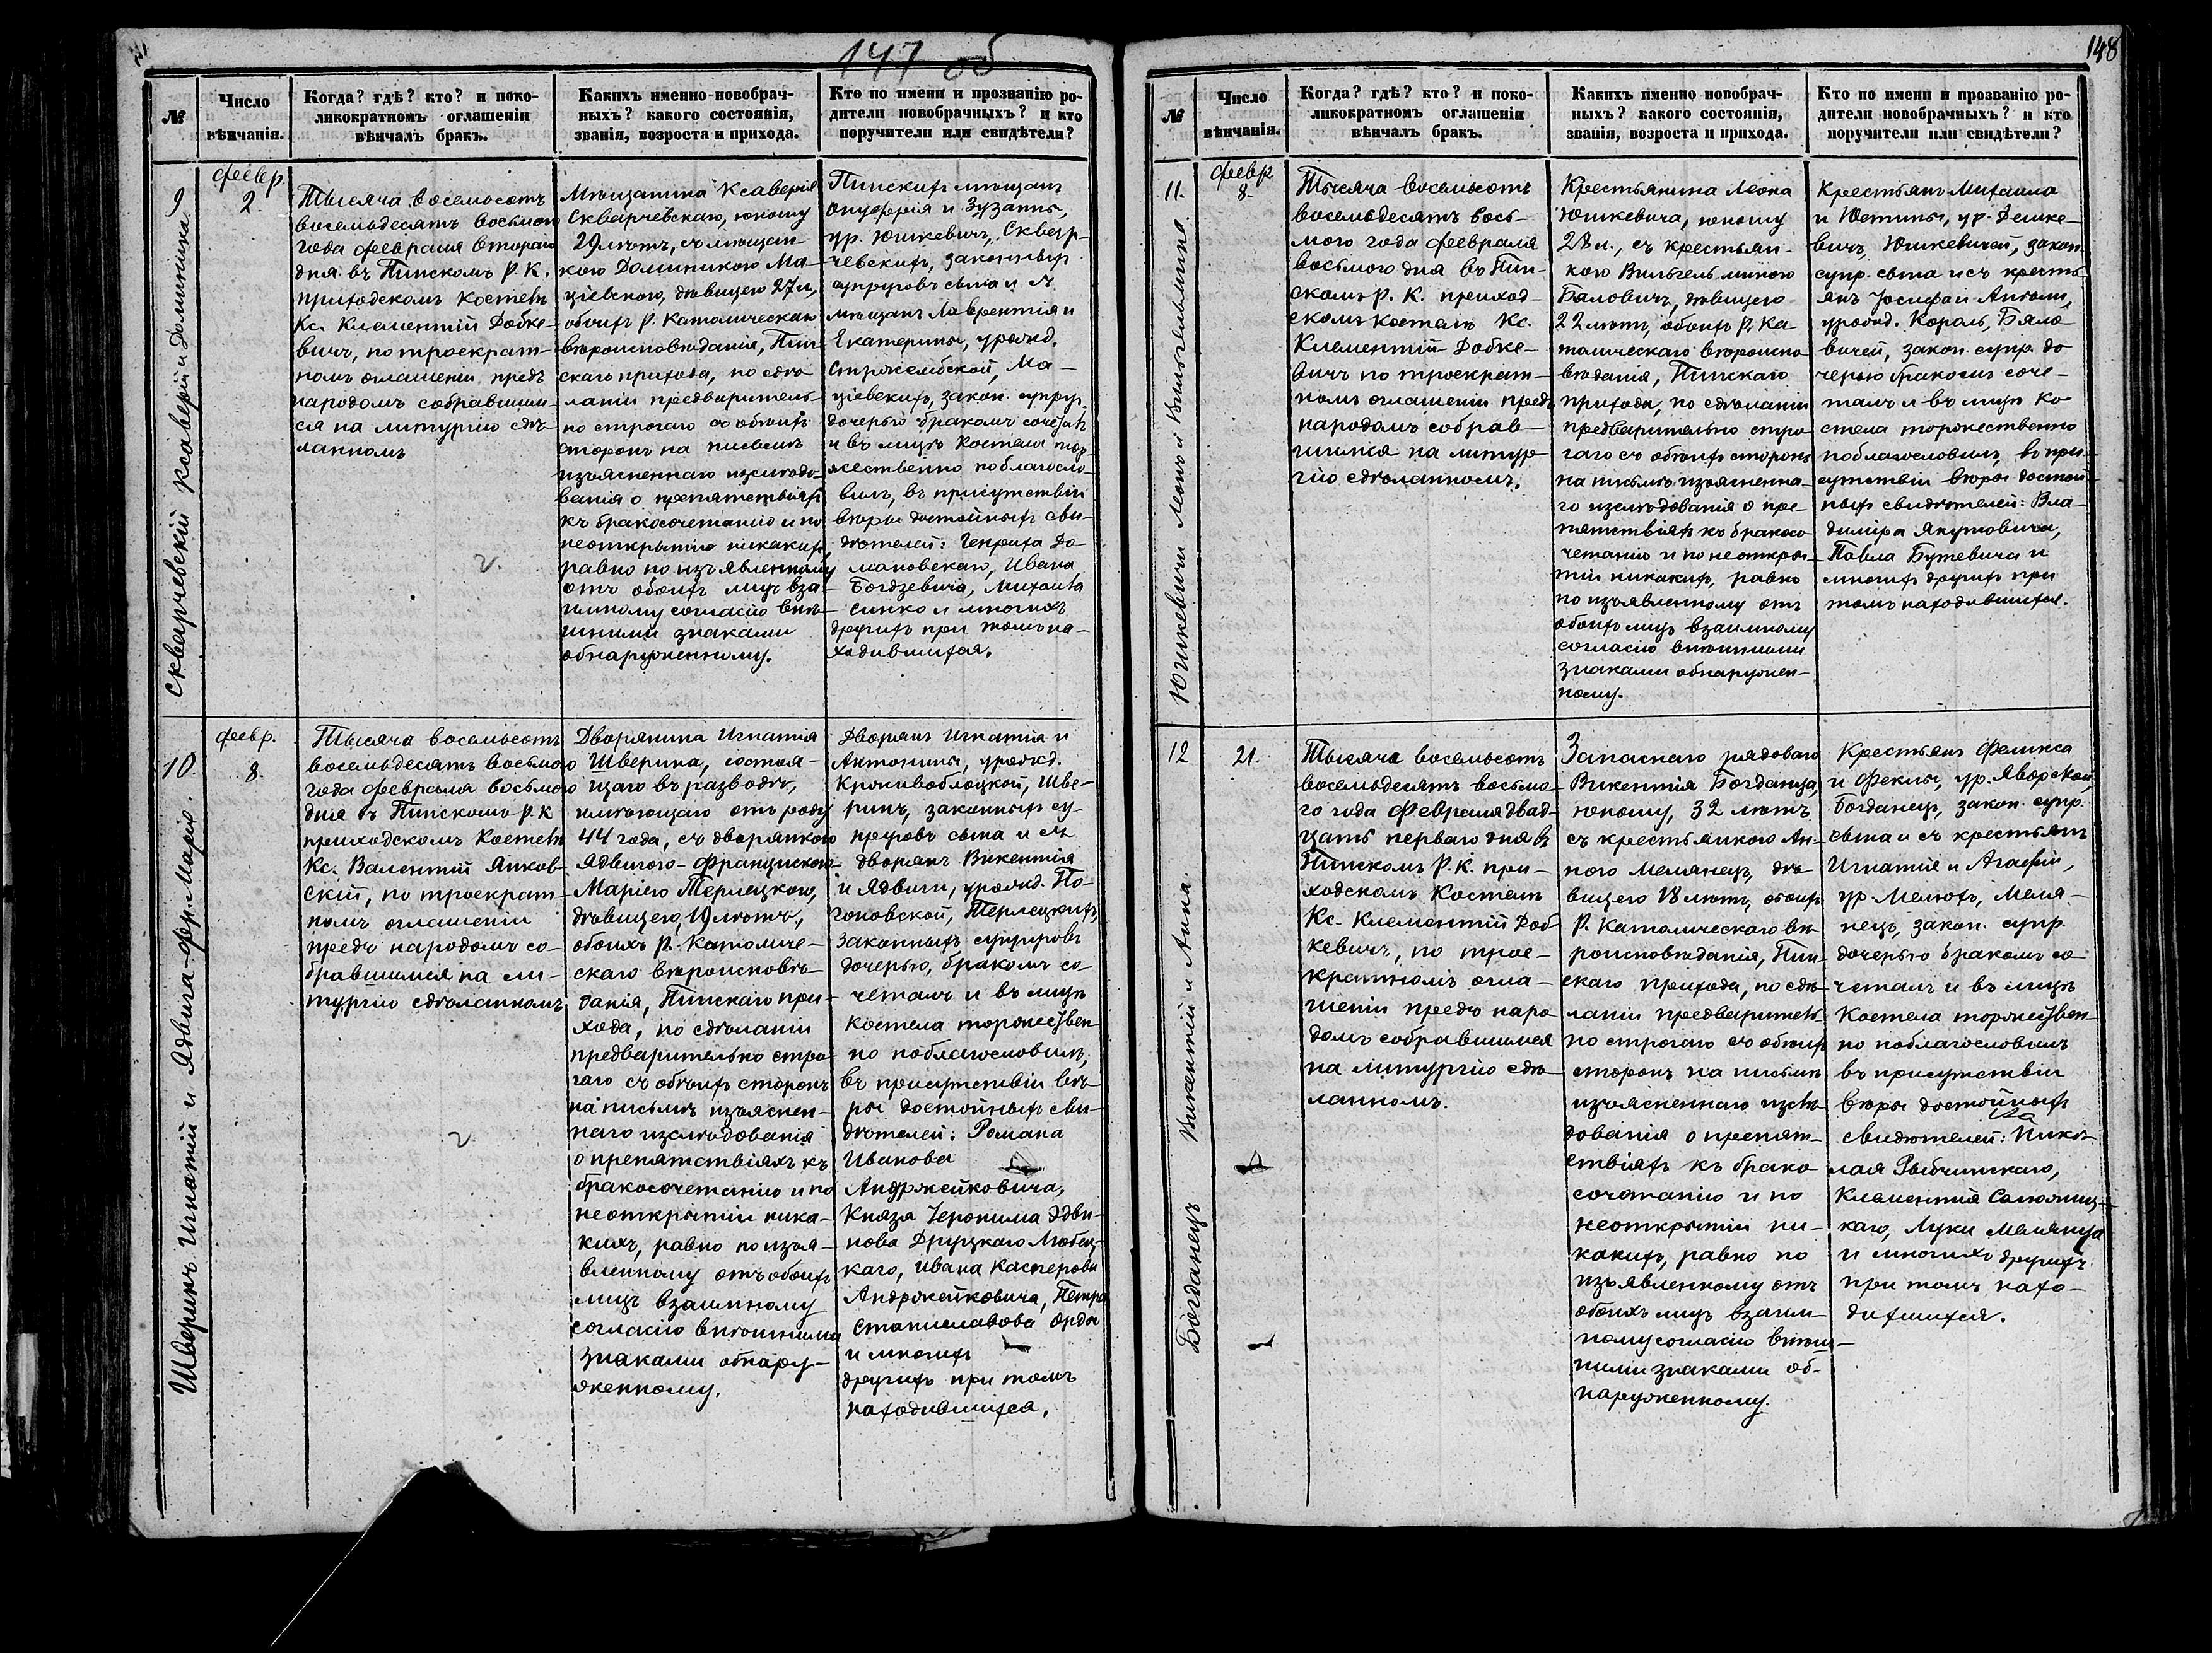 147 об
№
Число
вѣнчанія.
Когда? гдѣ? кто? и поко-
ликократномъ оглашеніи
вѣнчалъ бракъ.
Какихъ именно новобрач-
ныхъ? какого состоянія,
званія, возроста и прихода.
Кто по имени и прозванію ро-
дители новобрачныхъ? и кто
поручители или свидѣтели?
9
Скварчевскій Ксаверій и Доминика
февр.
2.
Тысяча восемьсотъ
восемьдесятъ восьмого
года февраля второго
дня въ Пинскомъ Р. К.
приходскомъ Костелѣ
Кс. Клементій Добке-
вичъ, по троекрат-
номъ оглашеніи предъ
народомъ собравшим-
ся на литургію сдѣ-
ланномъ
Мѣщанина Ксаверія
Скварчевскаго, юношу
29 лѣтъ, съ мѣщан-
кою Доминикою Ма-
ціевскою, дѣвицею 27 л.,
обоихъ Р. Католическаго
вѣроисповѣданія, Пин-
скаго прихода, по сдѣ-
ланіи предваритель-
но строгаго съ обѣихъ
сторонъ на письмѣ
изъясненнаго изслѣдо-
ванія о препятствіяхъ
къ бракосочетанію и по
неоткрытію никакихъ,
равно по изъявленному
отъ обоихъ лицъ вза-
имному согласію внѣ-
шними знаками
обнаруженному.
Пинскихъ мѣщанъ
Онуфрія и Зузанны,
ур. Юшкевичъ, Сквар-
чевскихъ, законныхъ
супруговъ сына и съ
мѣщанъ Лаврентія и
Екатерины, урожд.
Стржелбской, Ма-
ціевскихъ, закон. супруг.
дочерью бракомъ сочеталъ
и въ лицѣ Костела тор-
жественно поблагосло-
вилъ, въ присутствіи
вѣры достойныхъ сви-
дѣтелей: Генриха До-
мановскаго, Ивана
Богдзевича, Михаила
Синко и многихъ
другихъ при томъ на-
ходившихся.
10.
Шверинъ Игнатій и Ядвига-Фр. Марія.
февр.
8.
Тысяча восемьсотъ
восемьдесятъ восьмого
года февраля восьмого
дня въ Пинскомъ Р. К
приходскомъ Костелѣ
Кс. Валентій Янков-
скій, по троекрат-
номъ оглашеніи
предъ народомъ со-
бравшимся на ли-
тургію сдѣланномъ
Дворянина Игнатія
Шверина, состоя-
щаго въ разводѣ,
имѣющаго отъ роду
44 года, съ дворянкою
Ядвигою-Францискою-
Маріею Терлецкою,
дѣвицею, 19 лѣтъ,
обоихъ Р. Католиче-
скаго вѣроисповѣ-
данія, Пинскаго при-
хода, по сдѣланіи
предварительно стро-
гаго съ обѣихъ сторонъ
на письмѣ изъяснен-
наго изслѣдованія
о препятствіяхъ къ
бракосочетанію и по
неоткрытіи ника-
кихъ, равно по изъя-
вленному отъ обоихъ
лицъ взаимному
согласію внѣшними
знаками обнару-
женному.
Дворянъ Игнатія и
Антонины, урожд.
Крживоблоцкой, Шве-
ринъ, законныхъ су-
пруговъ сына и съ
дворянъ Викентія
и Ядвиги, урожд. По-
гоновской, Терлецкихъ,
законныхъ супруговъ
дочерью, бракомъ со-
четалъ и въ лицѣ
костела торжествен-
но поблагословилъ,
въ присутствіи вѣ-
ры достойныхъ сви-
дѣтелей: Романа
Иванова
Андржейковича,
Князя Іеронима Эдви-
нова Друцкаго Любец-
каго, Ивана Касперова
Андржейковича, Петра
Станиславова Орды
и многихъ
другихъ при томъ
находившихся.
148
№
Число
вѣнчанія.
Когда? гдѣ? кто? и поко-
ликократномъ оглашеніи
вѣнчалъ бракъ.
Какихъ именно новобрач-
ныхъ? какого состоянія,
званія, возроста и прихода.
Кто по имени и прозванію ро-
дители новобрачныхъ? и кто
поручители или свидѣтели?
11.
Юшкевичи Леонъ и Вильгельмина.
февр.
8.
Тысяча восемьсотъ
восемьдесятъ вось-
мого года февраля
восьмого дня въ Пин-
скомъ Р. К. приход-
скомъ костелѣ Кс.
Клементій Добке-
вичъ по троекрат-
номъ оглашеніи предъ
народомъ собрав-
шимся на литур-
гію сдѣланномъ.
Крестьянина Леона
Юшкевича, юношу
28 л., съ крестьян-
кою Вильгельминою
Бяловичъ, дѣвицею
22 лѣтъ, обоихъ Р. Ка
толическаго вѣроиспо
вѣданія, Пинскаго
прихода, по сдѣланіи
предварительно стро
гаго съ обѣихъ сторонъ
на письмѣ изъясненна-
го изслѣдованія о пре
пятствіяхъ къ бракосо
четанію и по неоткры-
тіи никакихъ, равно
по изъявленному отъ
обоихъ лицъ взаимному
согласію внѣшними
знаками обнаружен-
ному.
Крестьянъ Михаила
и Юстины, ур. Демке-
вичъ, Юшкевичей, закон.
супр. сына и съ кресть-
янъ Іосифа и Анѣли,
урожд. Король, Бяло-
вичей, закон. супр. до
черью бракомъ соче-
талъ и въ лицѣ Ко
стела торжественно
поблагословилъ, въ при-
сутствіи вѣры достой-
ныхъ свидѣтелей: Вла-
диміра Якутовича,
Павла Бутевича и
многихъ другихъ при
томъ находившихся.
12
Богданецъ Викентій и Анна.
21.
Тысяча восемьсотъ
восемьдесятъ восьмо-
го года Февраля двад-
цать перваго дня въ
Пинскомъ Р. К. при-
ходскомъ Костелѣ
Кс. Клементій Доб-
кевичъ, по трое-
кратномъ огла-
шеніи предъ наро
домъ собравшимся
на литургію сдѣ-
ланномъ.
Запаснаго рядоваго
Викентія Богданца,
юношу, 32 лѣтъ
съ крестьянкою Ан-
ною Мелянецъ, дѣ-
вицею 18 лѣтъ, обоихъ
Р. Католическаго вѣ
роисповѣданія, Пин-
скаго прихода, по сдѣ-
ланіи предваритель-
но строгаго съ обѣихъ
сторонъ на письмѣ
изъясненнаго изслѣ-
дованія о препят-
ствіяхъ къ брако
сочетанію и по
неоткрытіи ни-
какихъ, равно по
изъявленному отъ
обоихъ лицъ взаим-
ному согласію внѣш-
ними знаками об-
наруженному.
Крестьянъ Феликса
и Феклы, ур. Яворской,
Богданецъ, закон. супр.
сына и съ крестьянъ
Игнатія и Агафіи,
ур Мелюхъ, Меля-
нецъ, закон. супр.
дочерью бракомъ со
четалъ и въ лицѣ
Костела торжествен-
но поблагословилъ
въ присутствіи
вѣры достойныхъ
свидѣтелей: Нико-
лая Рыбчинскаго,
Клементія
каго, Луки Мелянца
и многихъ другихъ
при томъ нахо-
дившихся.